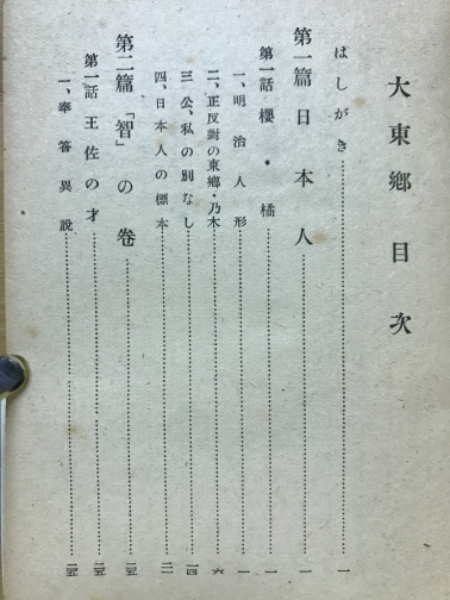 大東郷目次
はしがき……一
第一篇 日本人……一
第一話 櫻・橘……一
一、明治人形……一
二、正反對の東郷・乃木……六
三、公、私の別なし……一四
四、日本人の標本……二一
第二篇 「智」の卷……二五
第一話 王佐の才……二五
一、奉答異説……二五